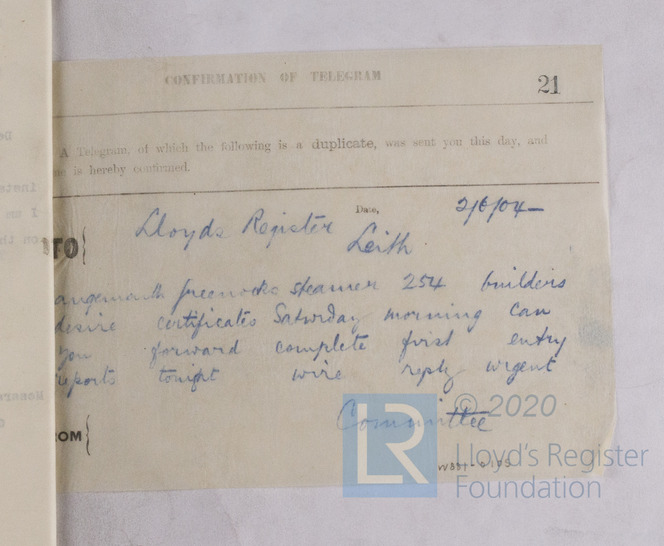 CONFIRMATION OF TELEGRAM
21
A Telegram, of which the following is a duplicate, was sent you this day, and
is hereby confirmed.
Date, 2/6/04
TO { Lloyds Register
Leith
angemouth greenocks steamer 254 builders
desire certificates Saturday morning can
you forward complete first entry
reports tonight wire reply urgent
Committee
OM {
© 2020
LR
Lloyd's Register
Foundation